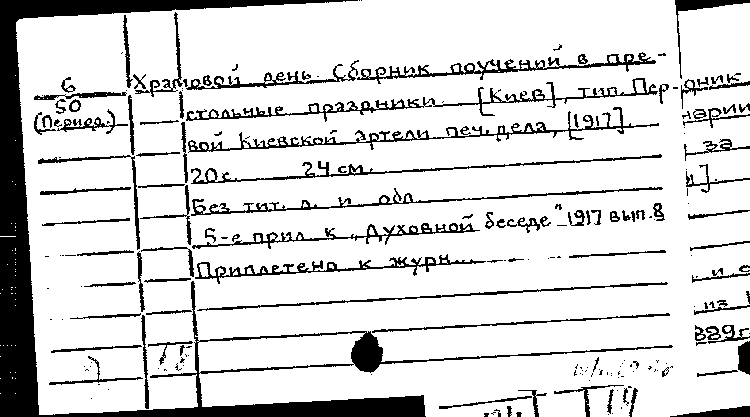 6
50
(Период.)
Храмовой день. Сборник поучений в пре-
стольные праздники. [Киев], тип. Пер-
вой Киевской артели печ. дела, [1917].
20 с. 24 см.
Без тит. л. и обл.
5-е прил. к „Духовной беседе" 1917 вып. 8
Приплетено к журн...
дник
нарии
за
и с
из
889 г
19